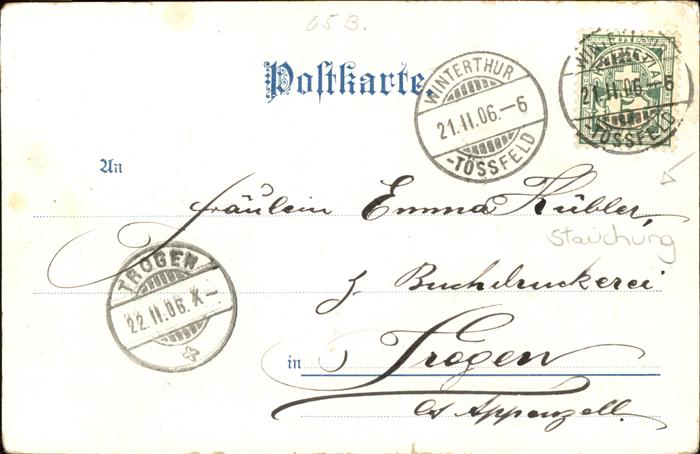 65 B.
Postkarte.
WINTERTHUR
21.II.06.–6
-TÖSSFELD
WINTERTHUR
21.II.06.–6
-TÖSSFELD
An
Fräulein Emma Kübler,
Stauchung
TROGEN
22.II.06.X–
z. Buchdruckerei
in Trogen
Ct. Appenzell.